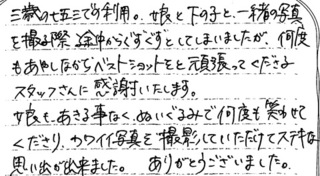 三歳の七五三での利用。娘と下の子と、一緒の写真
を撮る際、途中からぐずぐずとしてしまいましたが、何度
もあやしながらベストショットをと頑張ってくださる
スタッフさんに感謝いたします。
娘も、あきる事なく、ぬいぐるみで何度も笑わせて
くださり、カワイイ写真を撮影していただけてステキな
思い出が出来ました。 ありがとうございました。